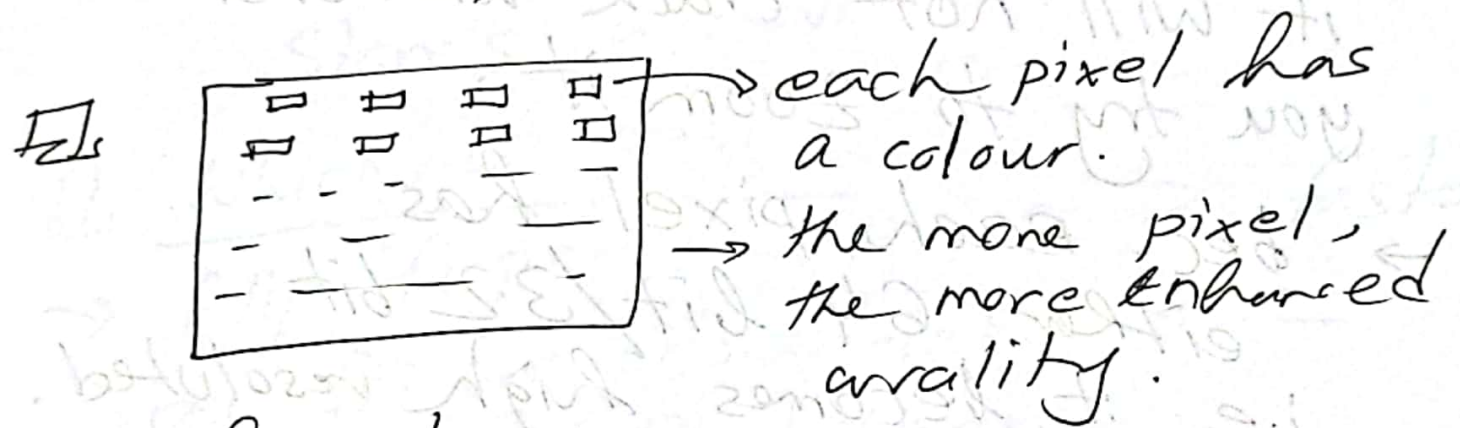 → each pixel has
a colour.
→ the more pixel,
the more enhanced
quality.